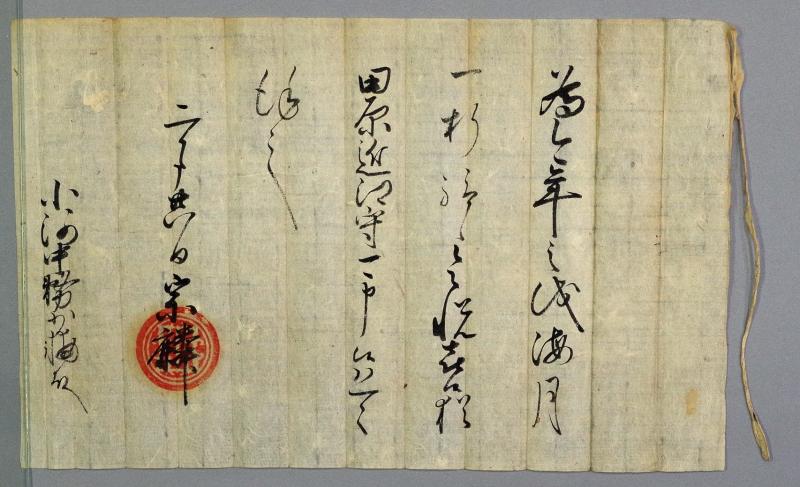 年之儀海月
一折悦喜候猶
田原近江守可申候恐々
謹言
二月廿八日 宗麟
小河中務少輔殿